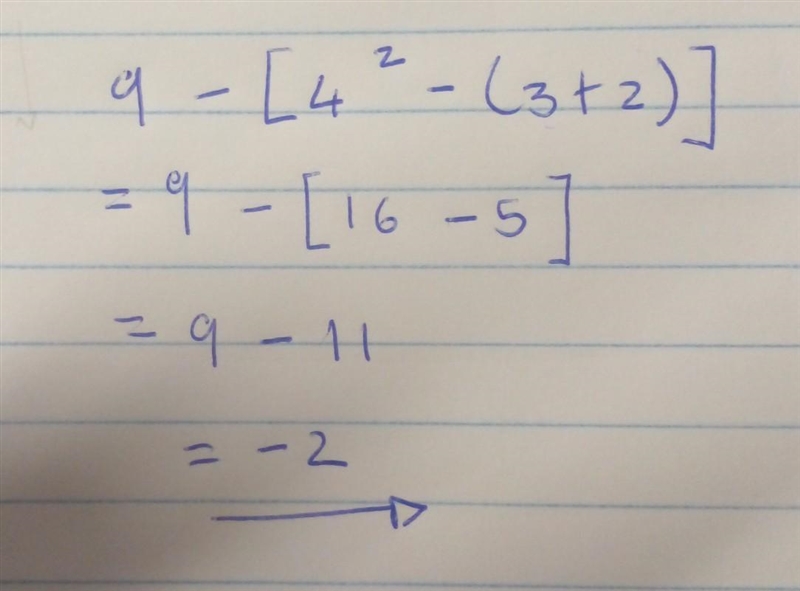 9 - [4² - (3+2)]
= 9 - [16 - 5]
= 9 - 11
= -2